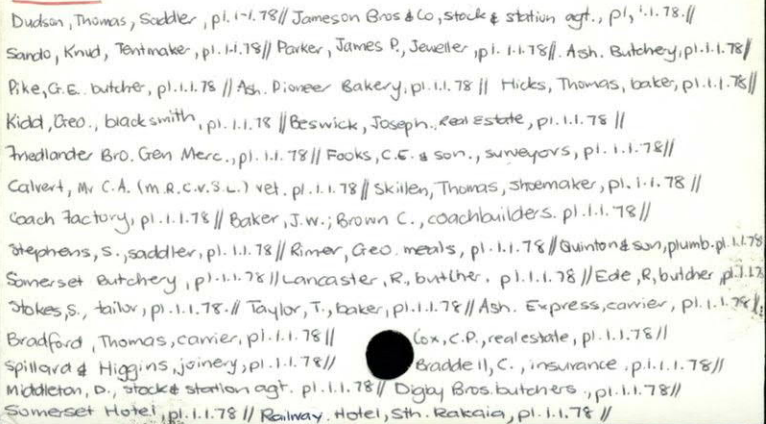 Dudson, Thomas, Saddler, pl. 1-1.78// Jameson Bros & Co, stock & station agt., pl, 1.1.78.//
Sando, Knud, Tentmaker, pl. 1.1.78// Parker, James P., Jeweller, pl. 1.1.78//. Ash. Butchery, pl. 1.1.78//
Pike, G.E. butcher, pl. 1.1.78 // Ash. Pioneer Bakery, pl. 1.1.78 // Hicks, Thomas, baker, pl. 1.1.78//
Kidd, Geo., blacksmith, pl. 1.1.78 // Beswick, Joseph., Real Estate, pl. 1.1.78 //
Friedlander Bro. Gen Merc., pl. 1.1.78// Fooks, C.E. & son., surveyors, pl. 1.1.78//
Calvert, Mr C.A. (M.R.C.V.S.L.) vet. pl. 1.1.78 // Skillen, Thomas, shoemaker, pl. 1-1.78 //
Coach Factory, pl. 1.1.78 // Baker, J.W.; Brown C., coachbuilders. pl. 1.1.78//
Stephens, S., saddler, pl. 1.1.78// Rimer, Geo. metals, pl. 1.1.78 // Quinton & son, plumb. pl. 1.1.78
Somerset Butchery, pl. 1.1.78 // Lancaster, R., butcher. pl. 1.1.78 // Ede, R, butcher pl. 1.1.7
Stokes, S., tailor, pl. 1.1.78. // Taylor, T., baker, pl. 1.1.78 // Ash. Express, carrier, pl. 1.1.78//
Bradford, Thomas, carrier, pl. 1.1.78 // Cox, C.P., real estate, pl. 1.1.78//
Spillard & Higgins, joinery, pl. 1.1.78// Braddell, C., insurance, p.1.1.78//
Middleton, D., stock & station agt. pl. 1.1.78// Digby Bros. butchers., pl. 1.1.78//
Somerset Hotel, pl. 1.1.78 // Railway. Hotel, Sth. Rakaia, pl. 1.1.78 //